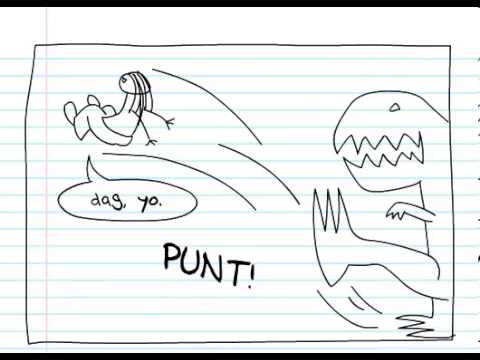 dag, yo.
PUNT!